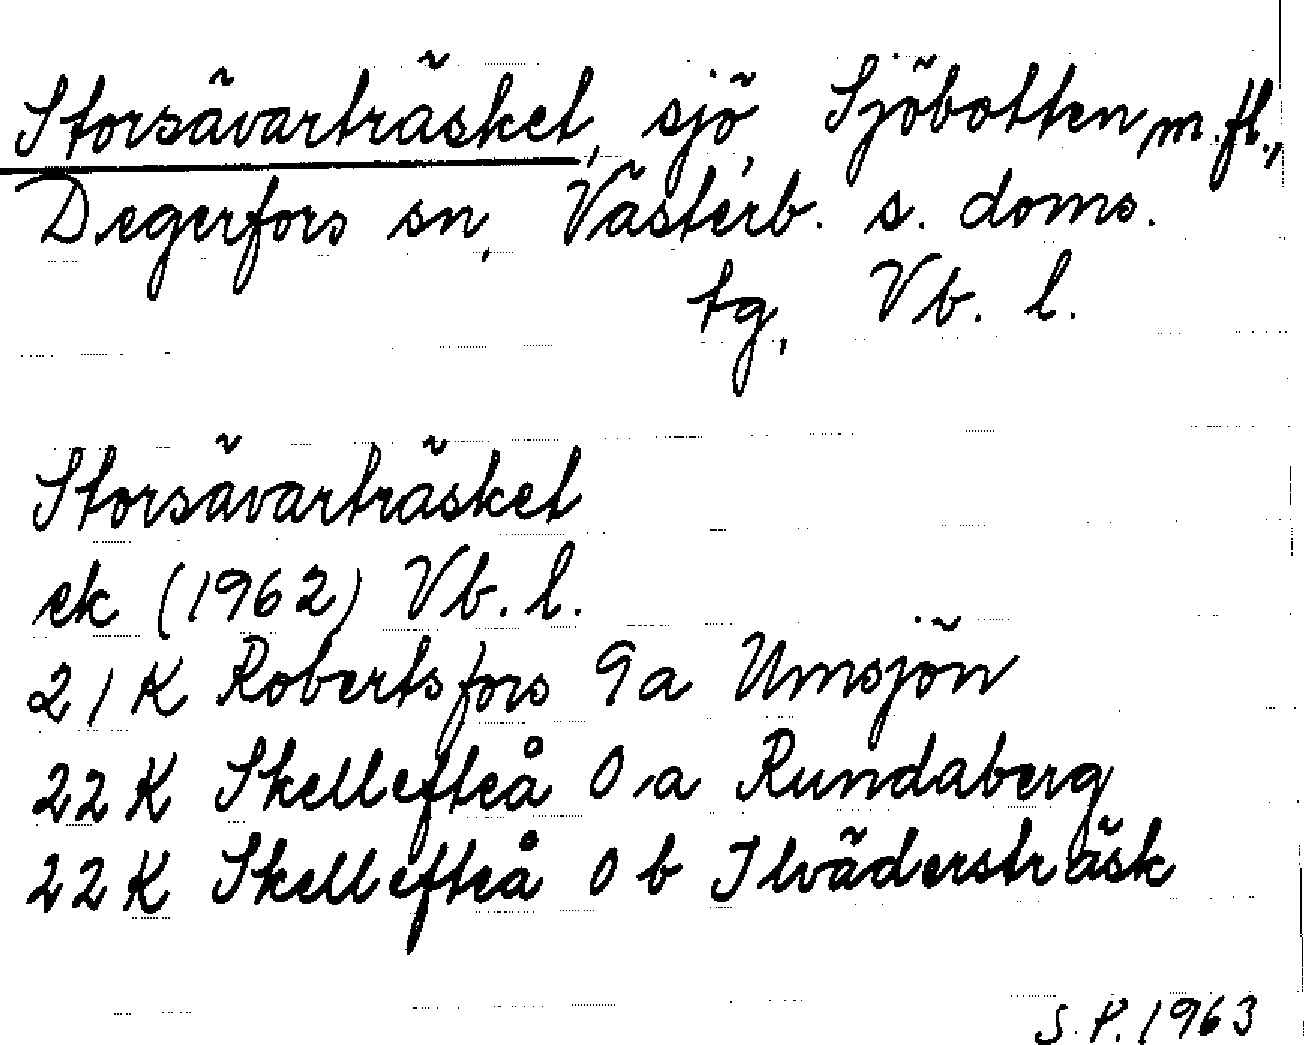 Storsävarträsket, sjö, Sjöbotten, m.fl.,
Degerfors sn, Västerb. s. doms.
tg, Vb. l.
Storsävarträsket
ek (1962) Vb. l.
21 K Robertsfors 9a Umsjön
22 K Skellefteå 0 a Rundaberg
22 K Skellefteå 0 b Ilvädersträsk
S.P. 1963